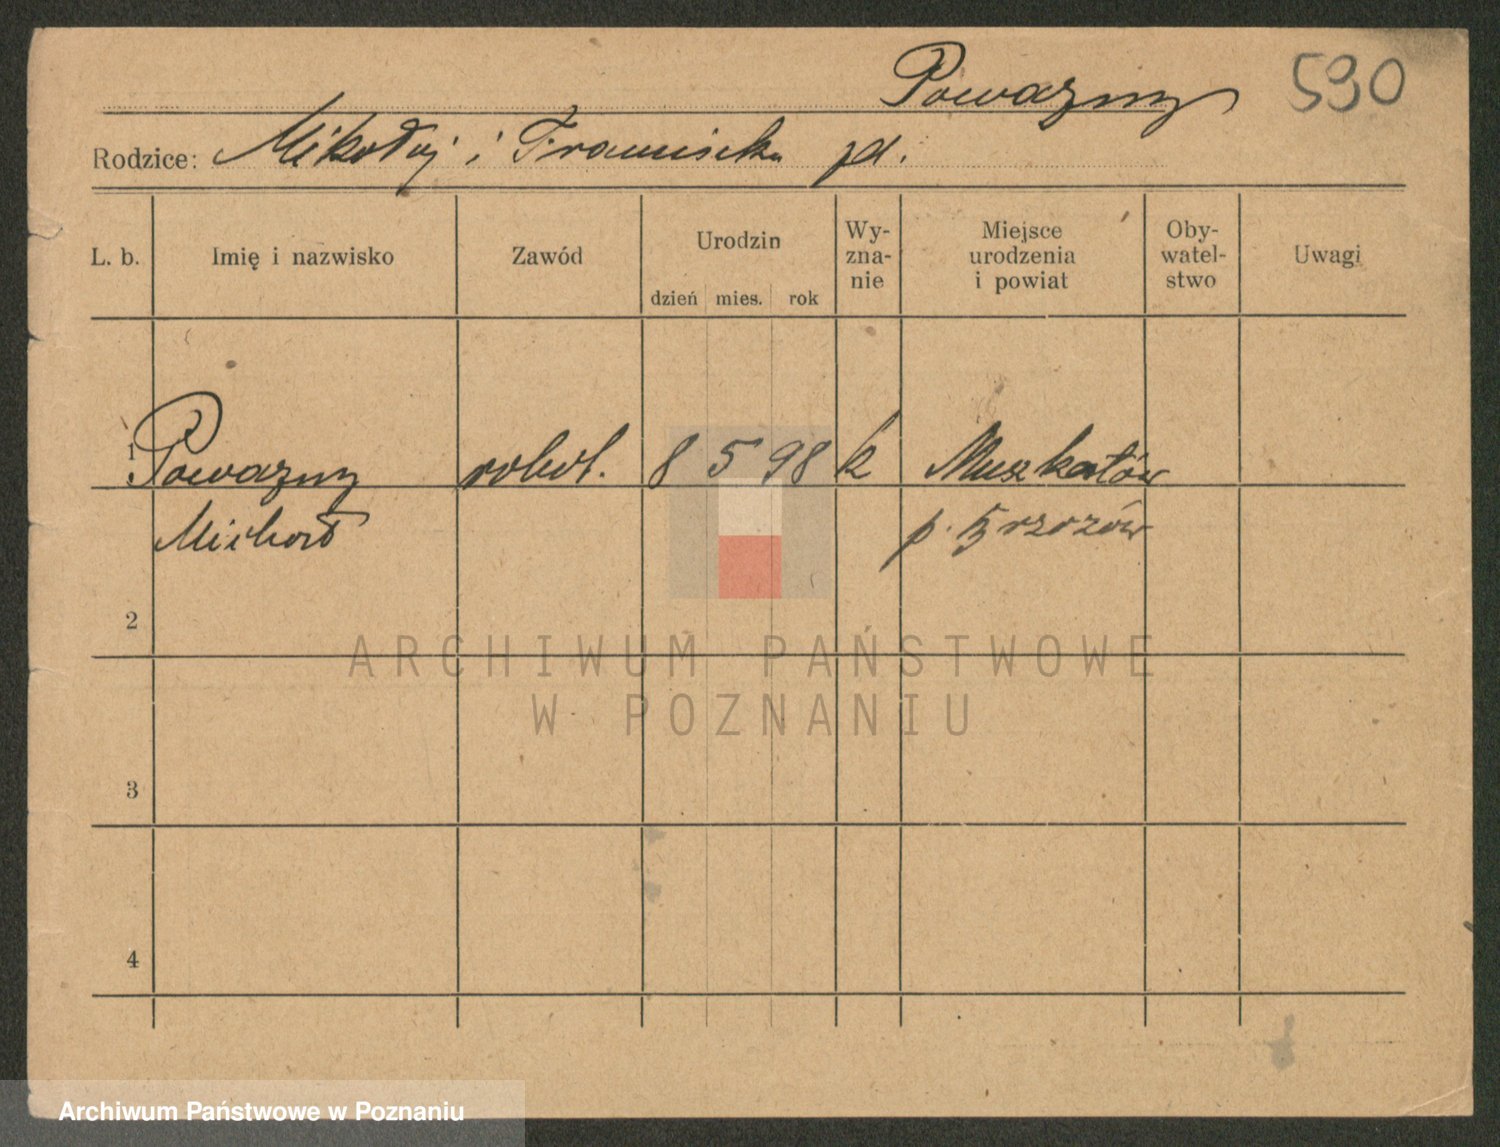 Powazny 590
Rodzice: Mikołaj i Franciszka
L. b. Imię i nazwisko Zawód Urodzin dzień mies. rok Wy-zna-nie Miejsce urodzenia i powiat Oby-watel-stwo Uwagi
1 Powazny robot. 8 5 98 k Muszkatów
Michał p. Brzozów
2
ARCHIWUM PAŃSTWOWE
W POZNANIU
3
4
Archiwum Państwowe w Poznaniu